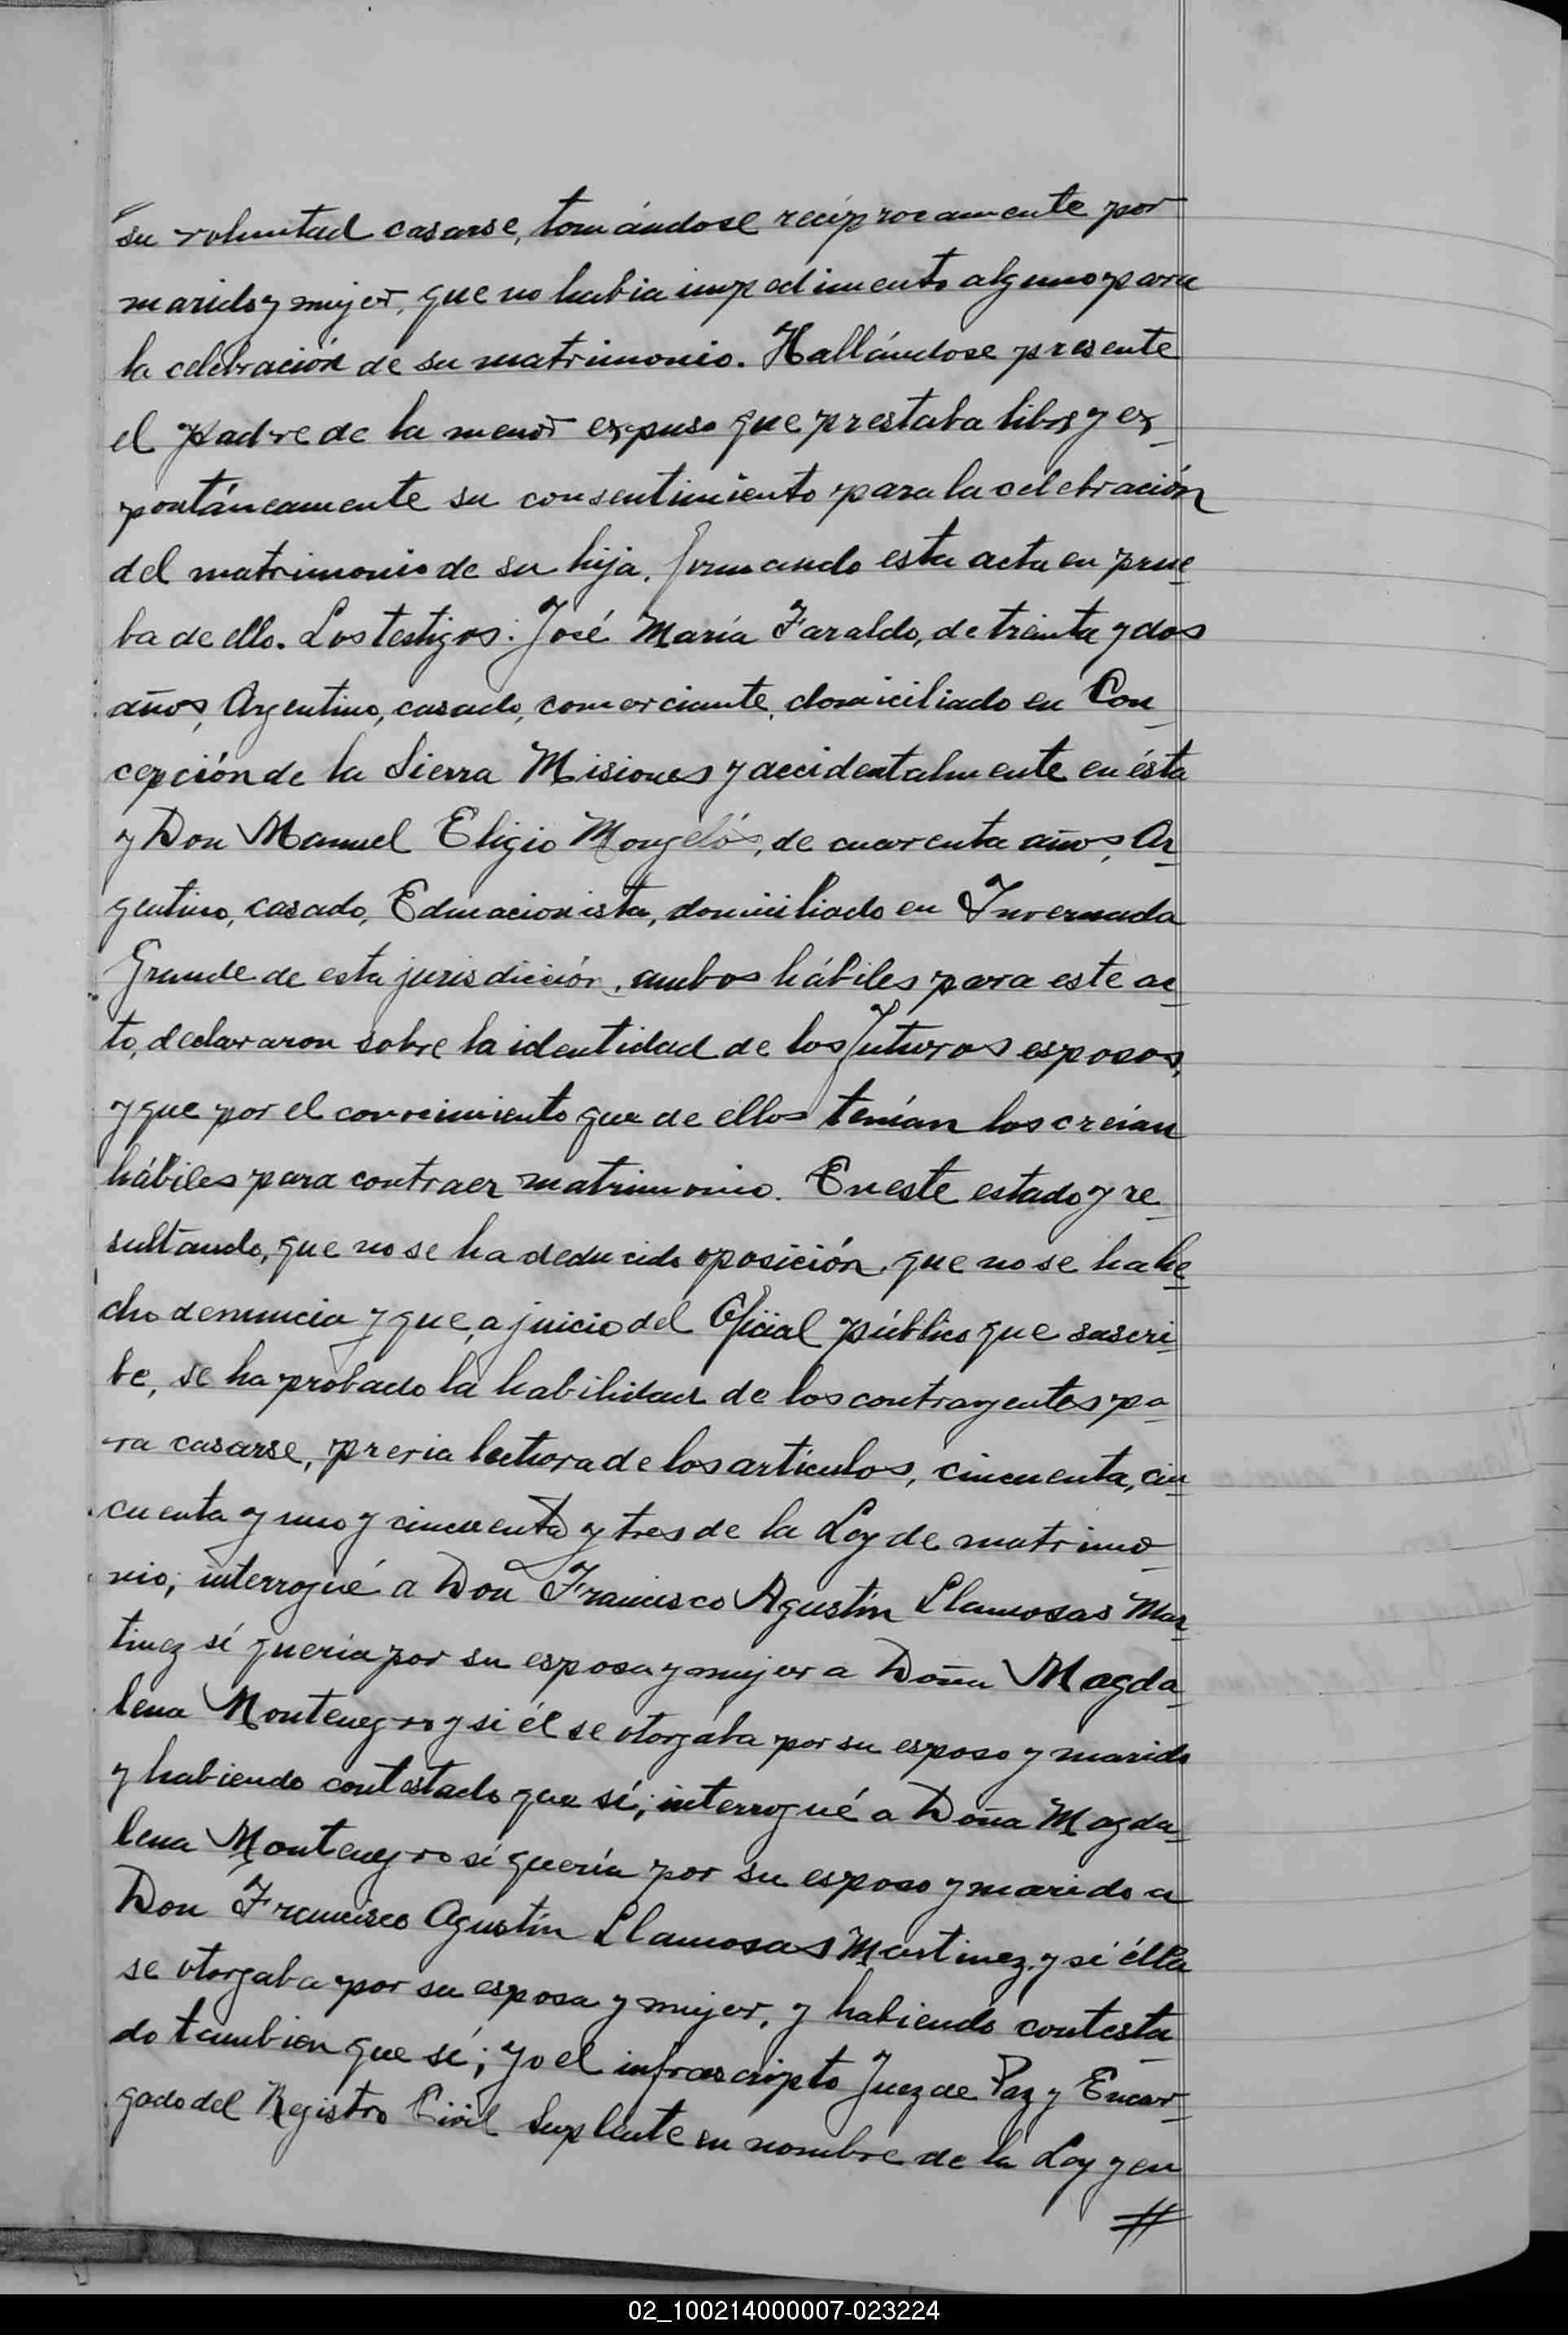 su voluntad casarse, tomándose recíprocamente por
marido y mujer, que no habia impedimento alguno para
la celebración de su matrimonio. Hallándose presente
el padre de la menor expuso que prestaba libre y ex_
pontáneamente su consentimiento para la celebración
del matrimonio de su hija, firmando esta acta en prue
ba de ello. Los testigos: José María Faraldo, de treinta y dos
años, Argentino, casado, comerciante, domiciliado en Con_
cepción de la Sierra Misiones y accidentalmente en ésta
y Don Manuel Eligio Mongelós, de cuarenta años, Ar
gentino, casado, Educacionista, domiciliado en Invernada
Grande de esta jurisdicción, ambos hábiles para este ac
to, declararon sobre la identidad de los futuros esposos,
y que por el conocimiento que de ellos tenían los creían
hábiles para contraer matrimonio. En este estado y re_
sultando, que no se ha deducido oposición, que no se ha he
cho denuncia y que, a juicio del Oficial público que suscri
be, se ha probado la habilidad de los contrayentes pa_
ra casarse, previa lectura de los artículos, cincuenta, cin
cuenta y uno y cincuenta y tres de la Ley de matrimo_
nio; interrogué a Don Francisco Agustín Llamosas Mar
tinez sí quería por su esposa y mujer a Doña Magda_
lena Montenegro y si él se otorgaba por su esposo y marido
y habiendo contestado que sí; interrogué a Doña Magda_
lena Montenegro si quería por su esposo y marido a
Don Francisco Agustín Llamosas Martinez y si élla
se otorgaba por su esposa y mujer, y habiendo contesta_
do tambien que sí; yo el infrascripto Juez de Paz y Encar_
gado del Registro Civil Suplente en nombre de la Ley y en
//
02_100214000007-023224